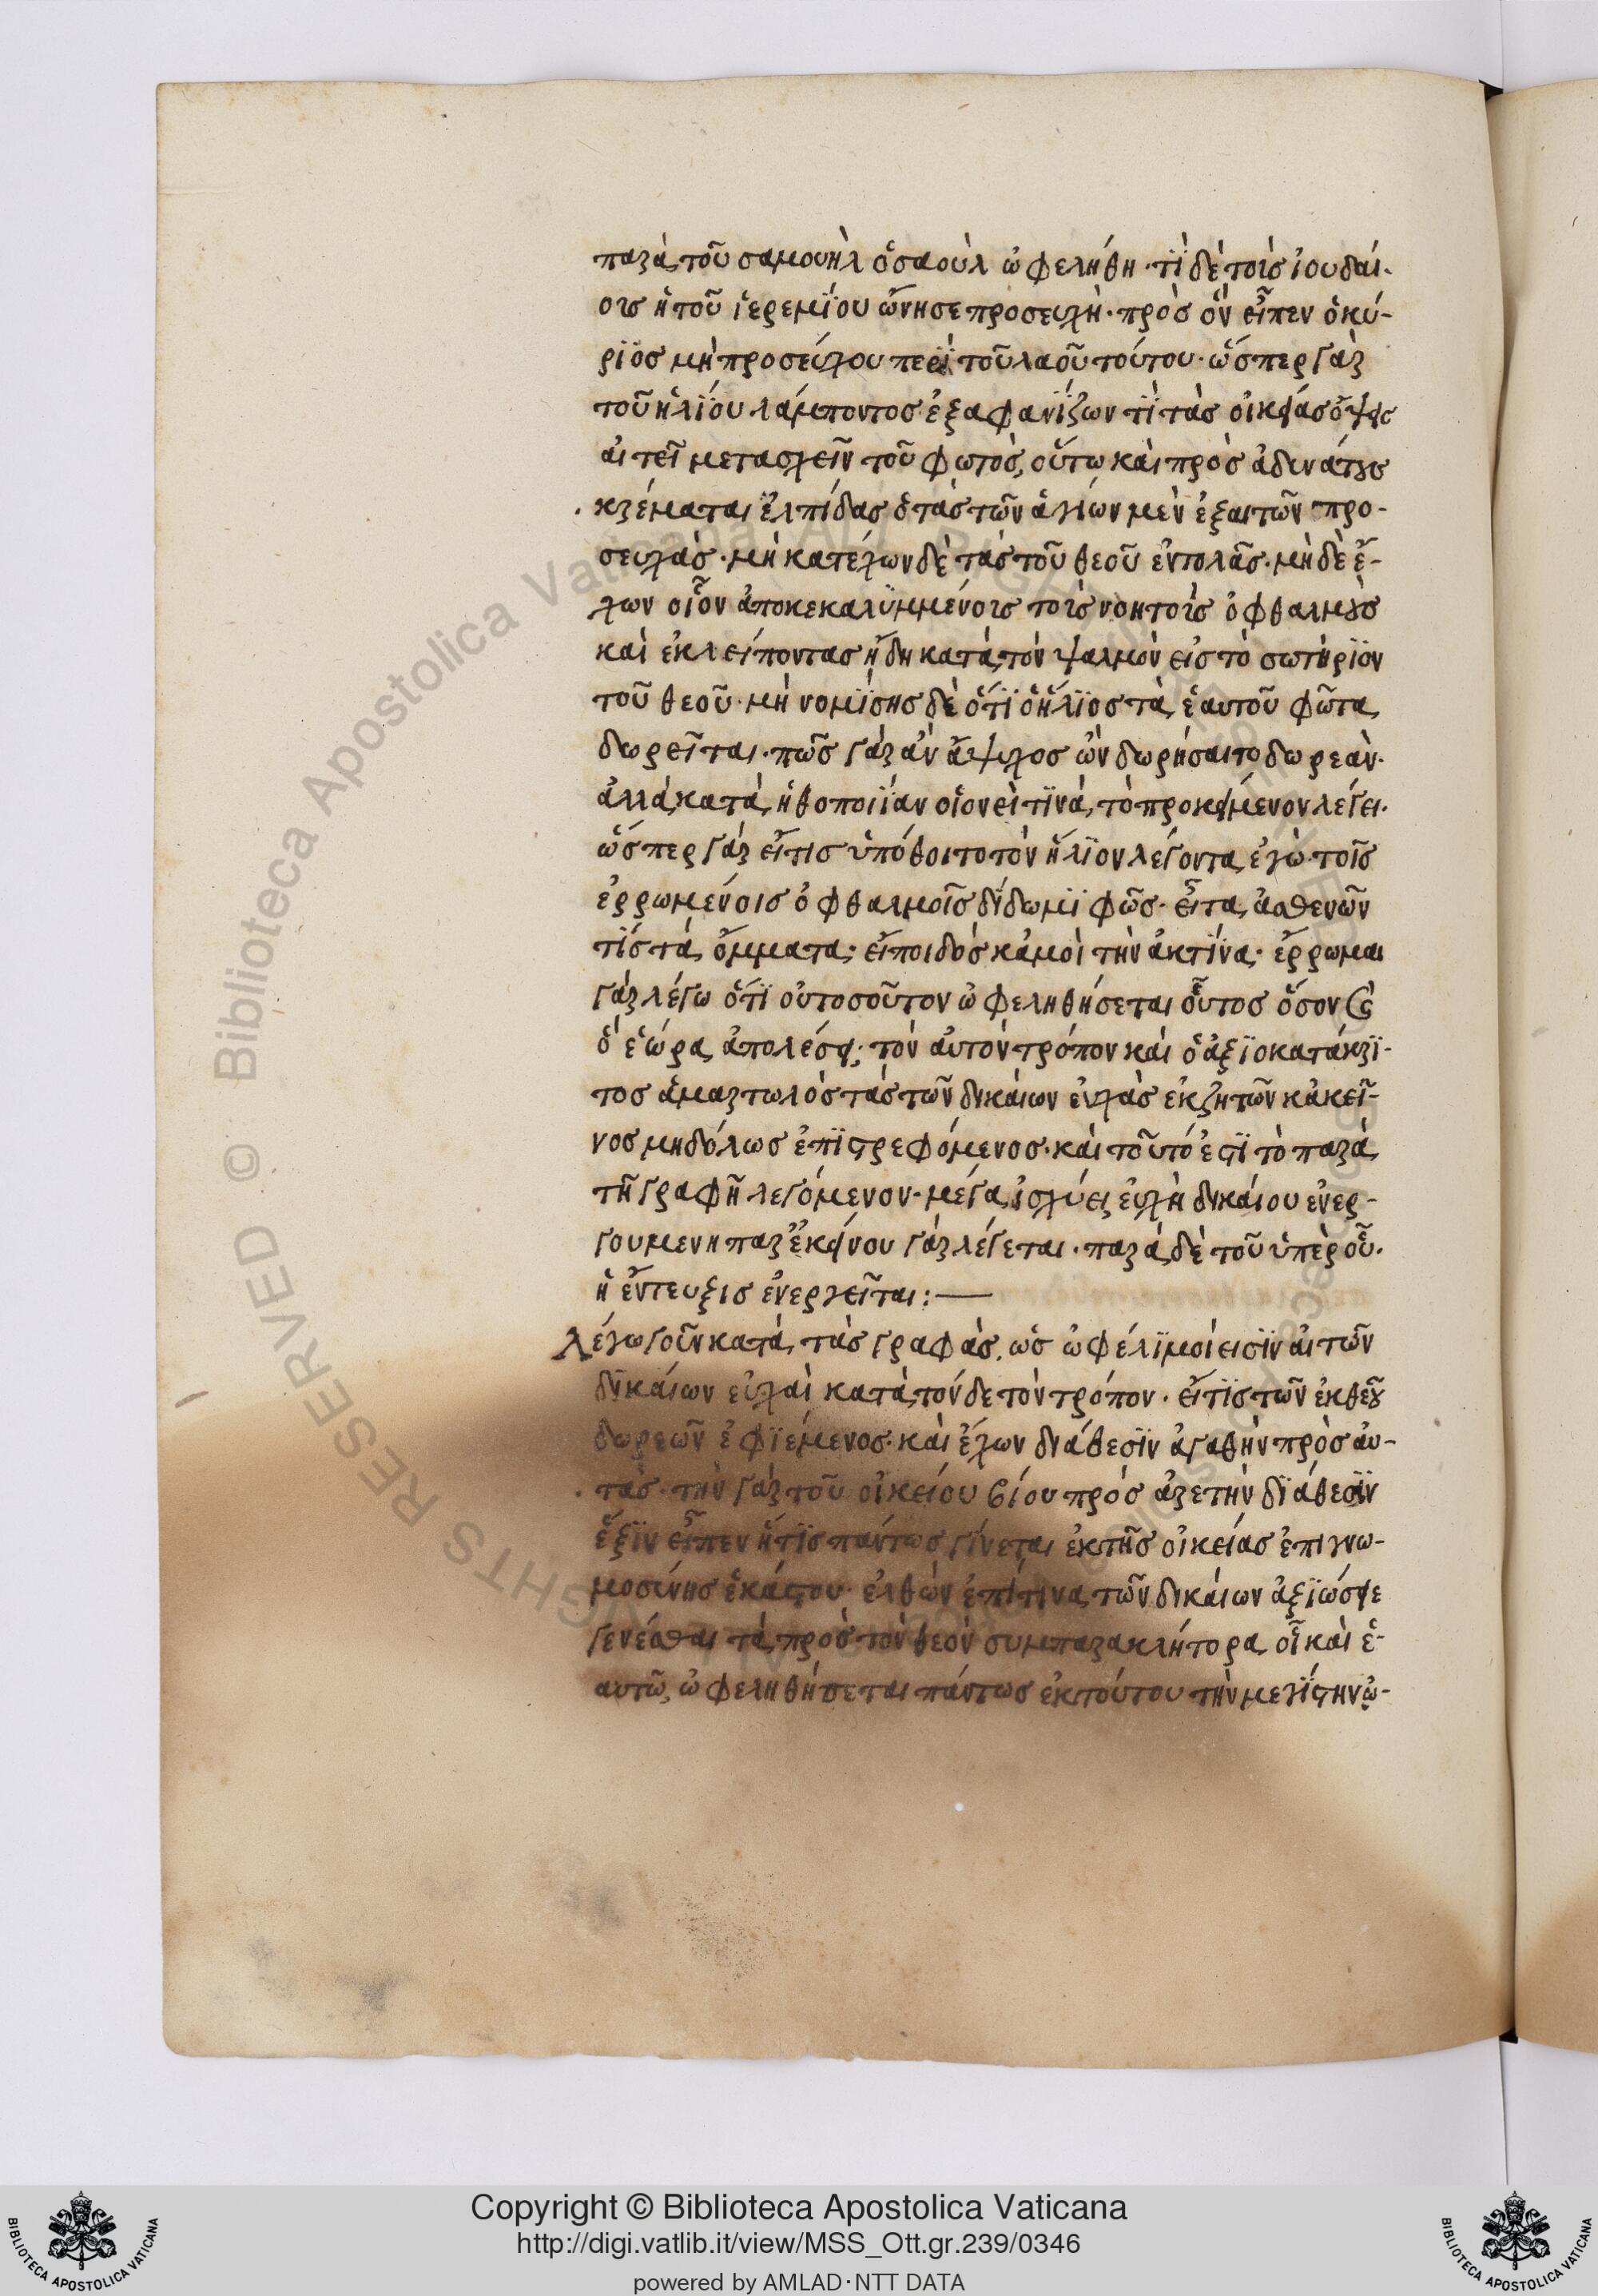 παρὰ τοῦ σαμουὴλ ὁ σαοὺλ ὠφελήθη · τί δὲ τοῖς ἰουδαί-
οις ἡ τοῦ ἱερεμΐου ὤνησε προσευχὴ · πρὸς ὃν εἶπεν ὁ κύ-
ριος μὴ προσεύχου περὶ τοῦ λαοῦ τούτου · ὥσπερ γὰρ
τοῦ ἡλίου λάμποντος ἐξαφανίζων τὶς τὰς οἰκείας ὄψεις
αἰτεῖ μετασχεῖν τοῦ φωτὸς, οὕτω καὶ πρὸς ἀδυνάτους
κρέμαται ἐλπίδας ὁ τὰς τῶν ἁγίων μὲν ἐξαιτῶν προ-
σευχὰς · μὴ κατέχων δὲ τὰς τοῦ θεοῦ ἐντολὰς · μὴ δὲ ἔ-
χων οἷον ἀποκεκαλυμμένοις τοῖς νοητοῖς ὀφθαλμοὺς
καὶ ἐκλείποντας ἤδη κατὰ τὸν ψαλμὸν εἰς τὸ σωτήριον
τοῦ θεοῦ · μὴ νομίσης δὲ ὅτι ὁ ἥλιος τὰ ἑαυτοῦ φῶτα
δωρεῖται · πῶς γὰρ ἂν ἄψυχος ὢν δωρήσαιτο δωρεὰν ·
ἀλλὰ κατὰ ἠθοποιΐαν οἱονεί τινὰ τὸ προκείμενον λέγει ·
ὥσπερ γὰρ εἴ τις ὑπόθοιτο τὸν ἥλιον λέγοντα ἐγὼ τοῖς
ἐρρωμένοις ὀφθαλμοῖς δίδωμι φῶς · εἶτα ἀσθενῶν
τὶς τὰ ὄμματα · εἴποι δὸς κἀμοὶ τὴν ἀκτῖνα · ἔρρωμαι
γὰρ λέγω ὅτι οὐ τοσοῦτον ὠφεληθήσεται οὗτος ὅσον καὶ
ὃ ἑώρα ἀπολέσει · τὸν αὐτὸν τρόπον καὶ ὁ ἀξιοκατάκρι-
τος ἁμαρτωλὸς τὰς τῶν δικαίων εὐχὰς ἐκζητῶν κἀκεῖ-
νος μηδόλως ἐπιστρεφόμενος · καὶ τοῦτό ἐστι τὸ παρὰ
τῆ γραφῆ λεγόμενον · μέγα ἰσχύει εὐχὴ δικαίου ἐνερ-
γουμενη παρ ἐκείνου γὰρ λέγεται · παρὰ δὲ τοῦ ὑπὲρ οὗ ·
ἡ ἔντευξις ἐνεργεῖται : —
λέγω γοῦν κατὰ τὰς γραφὰς, ὡς ὠφέλιμοί εἰσιν αἱ τῶν
δικαίων εὐχαὶ κατὰ τόνδε τὸν τρόπον · εἴ τις τῶν ἐκ θεοῦ
δωρεῶν ἐφιέμενος · καὶ ἔχων διάθεσιν ἀγαθὴν πρὸς αὐ-
τὰς · τὴν γὰρ τοῦ οἰκείου βίου πρὸς ἀρετὴν διάθεσιν
ἕξιν εἶπεν ἥτις πάντως γίνεται ἐκ τῆς οἰκείας ἐπιγνω-
μοσύνης ἑκάστου · ἐλθὼν ἐπί τινα τῶν δικαίων ἀξιώσειε
γενέσθαι τὰ πρὸς τὸν θεὸν συμπαρακλήτορα οἷ καὶ ἑ-
αυτῶ, ὠφεληθήσεται πάντως ἐκ τούτου τὴν μεγίστην ὠ-
Biblioteca Apostolica Vaticana
© Biblioteca Apostolica Vaticana
ALL RIGHTS RESERVED
Copyright © Biblioteca Apostolica Vaticana
http://digi.vatlib.it/view/MSS_Ott.gr.239/0346
powered by AMLAD·NTT DATA
BIBLIOTECA APOSTOLICA VATICANA
BIBLIOTECA APOSTOLICA VATICANA